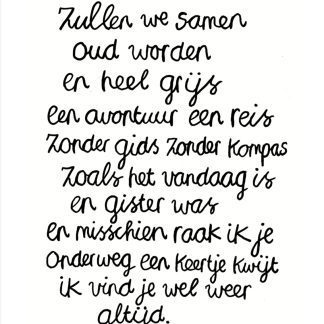 Zullen we samen
oud worden
en heel grijs
een avontuur een reis
Zonder gids zonder kompas
Zoals het vandaag is
en gister was
en misschien raak ik je
Onderweg een keertje kwijt
ik vind je wel weer
altijd.